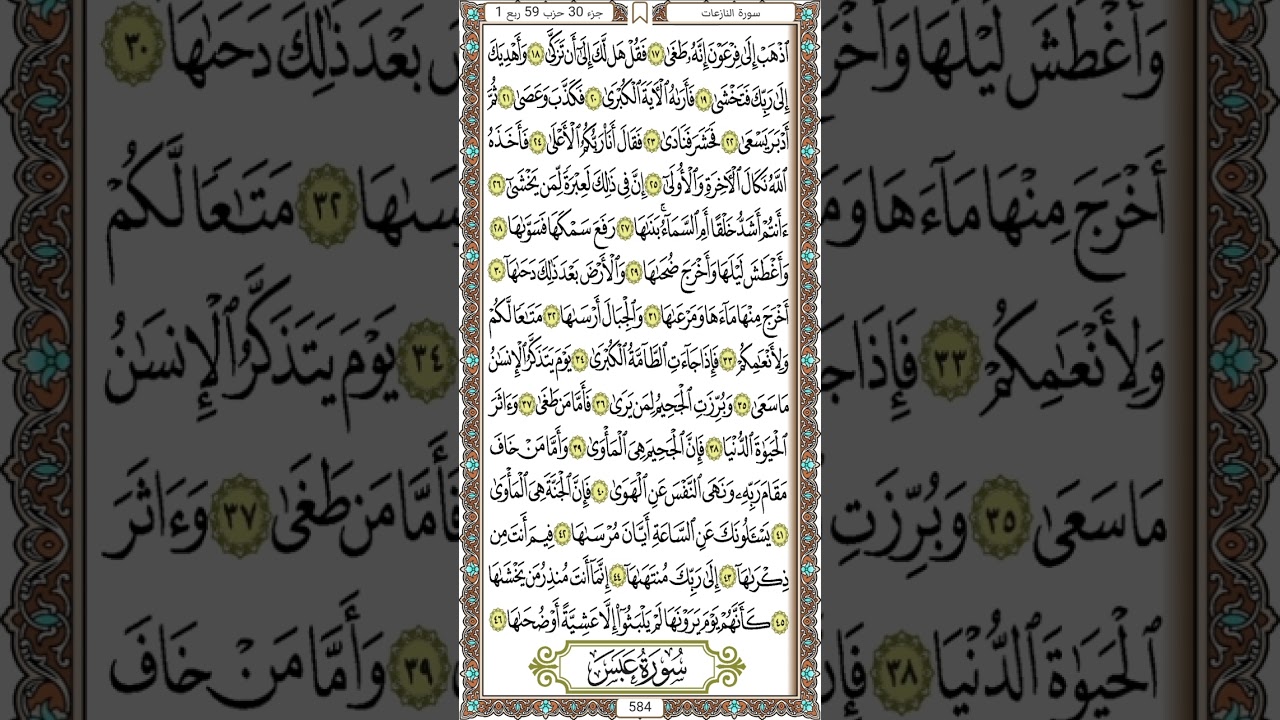 سورة النازعات
جزء 30 حزب 59 ربع 1
ٱذْهَبْ إِلَىٰ فِرْعَوْنَ إِنَّهُۥ طَغَىٰ ١٧ فَقُلْ هَل لَّكَ إِلَىٰٓ أَن تَزَكَّىٰ ١٨ وَأَهْدِيَكَ
إِلَىٰ رَبِّكَ فَتَخْشَىٰ ١٩ فَأَرَىٰهُ ٱلْـَٔايَةَ ٱلْكُبْرَىٰ ٢٠ فَكَذَّبَ وَعَصَىٰ ٢١ ثُمَّ
أَدْبَرَ يَسْعَىٰ ٢٢ فَحَشَرَ فَنَادَىٰ ٢٣ فَقَالَ أَنَا۠ رَبُّكُمُ ٱلْأَعْلَىٰ ٢٤ فَأَخَذَهُ
ٱللَّهُ نَكَالَ ٱلْـَٔاخِرَةِ وَٱلْأُولَىٰٓ ٢٥ إِنَّ فِى ذَٰلِكَ لَعِبْرَةً لِّمَن يَخْشَىٰٓ ٢٦
ءَأَنتُمْ أَشَدُّ خَلْقًا أَمِ ٱلسَّمَآءُ ۚ بَنَىٰهَا ٢٧ رَفَعَ سَمْكَهَا فَسَوَّىٰهَا ٢٨
وَأَغْطَشَ لَيْلَهَا وَأَخْرَجَ ضُحَىٰهَا ٢٩ وَٱلْأَرْضَ بَعْدَ ذَٰلِكَ دَحَىٰهَآ ٣٠
أَخْرَجَ مِنْهَا مَآءَهَا وَمَرْعَىٰهَا ٣١ وَٱلْجِبَالَ أَرْسَىٰهَا ٣٢ مَتَـٰعًا لَّكُمْ
وَلِأَنْعَـٰمِكُمْ ٣٣ فَإِذَا جَآءَتِ ٱلطَّآمَّةُ ٱلْكُبْرَىٰ ٣٤ يَوْمَ يَتَذَكَّرُ ٱلْإِنسَـٰنُ
مَا سَعَىٰ ٣٥ وَبُرِّزَتِ ٱلْجَحِيمُ لِمَن يَرَىٰ ٣٦ فَأَمَّا مَن طَغَىٰ ٣٧ وَءَاثَرَ
ٱلْحَيَوٰةَ ٱلدُّنْيَا ٣٨ فَإِنَّ ٱلْجَحِيمَ هِىَ ٱلْمَأْوَىٰ ٣٩ وَأَمَّا مَنْ خَافَ
مَقَامَ رَبِّهِۦ وَنَهَى ٱلنَّفْسَ عَنِ ٱلْهَوَىٰ ٤٠ فَإِنَّ ٱلْجَنَّةَ هِىَ ٱلْمَأْوَىٰ
٤١ يَسْـَٔلُونَكَ عَنِ ٱلسَّاعَةِ أَيَّانَ مُرْسَىٰهَا ٤٢ فِيمَ أَنتَ مِن
ذِكْرَىٰهَآ ٤٣ إِلَىٰ رَبِّكَ مُنتَهَىٰهَآ ٤٤ إِنَّمَآ أَنتَ مُنذِرُ مَن يَخْشَىٰهَا
٤٥ كَأَنَّهُمْ يَوْمَ يَرَوْنَهَا لَمْ يَلْبَثُوٓا۟ إِلَّا عَشِيَّةً أَوْ ضُحَىٰهَا ٤٦
سُورَةُ عَبَسَ
584